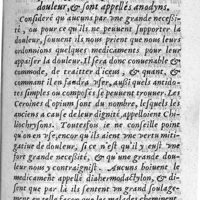 douleur, & sont appellés anodyns.
Consideré qu'aucuns par vne grande necessi-
té, ou pour ce qu'ils ne peuvent supporter la
douleur, souvent ils nous prient que nous leurs
ordonnions quelques medicaments pour leur
appaiser la douleur. Il sera donc conuenable &
commode, de traitter d'iceux, & quant, &
comment il en faudra vser, aussi quels antido-
tes simples ou composés se peuuent trouuer. Les
Ceroines d'opium sont du nombre, lesquels les
anciens a cause de leur dignité, appelloient Chy-
lochrysons. Toutesfois ie ne conseille point
qu'on en vse, encor qu'ils aient vne vertu miti-
gative de douleur, si ce n'est qu'il y eust vne
fort grande necessité, & qu'une grande dou-
leur nous y contraignist. Aucuns boiuent le
medicament appellé diahermodactylon, & di-
sent que par là ils sentent vn grand soulage-
ment en telle façon que les malades cheminent